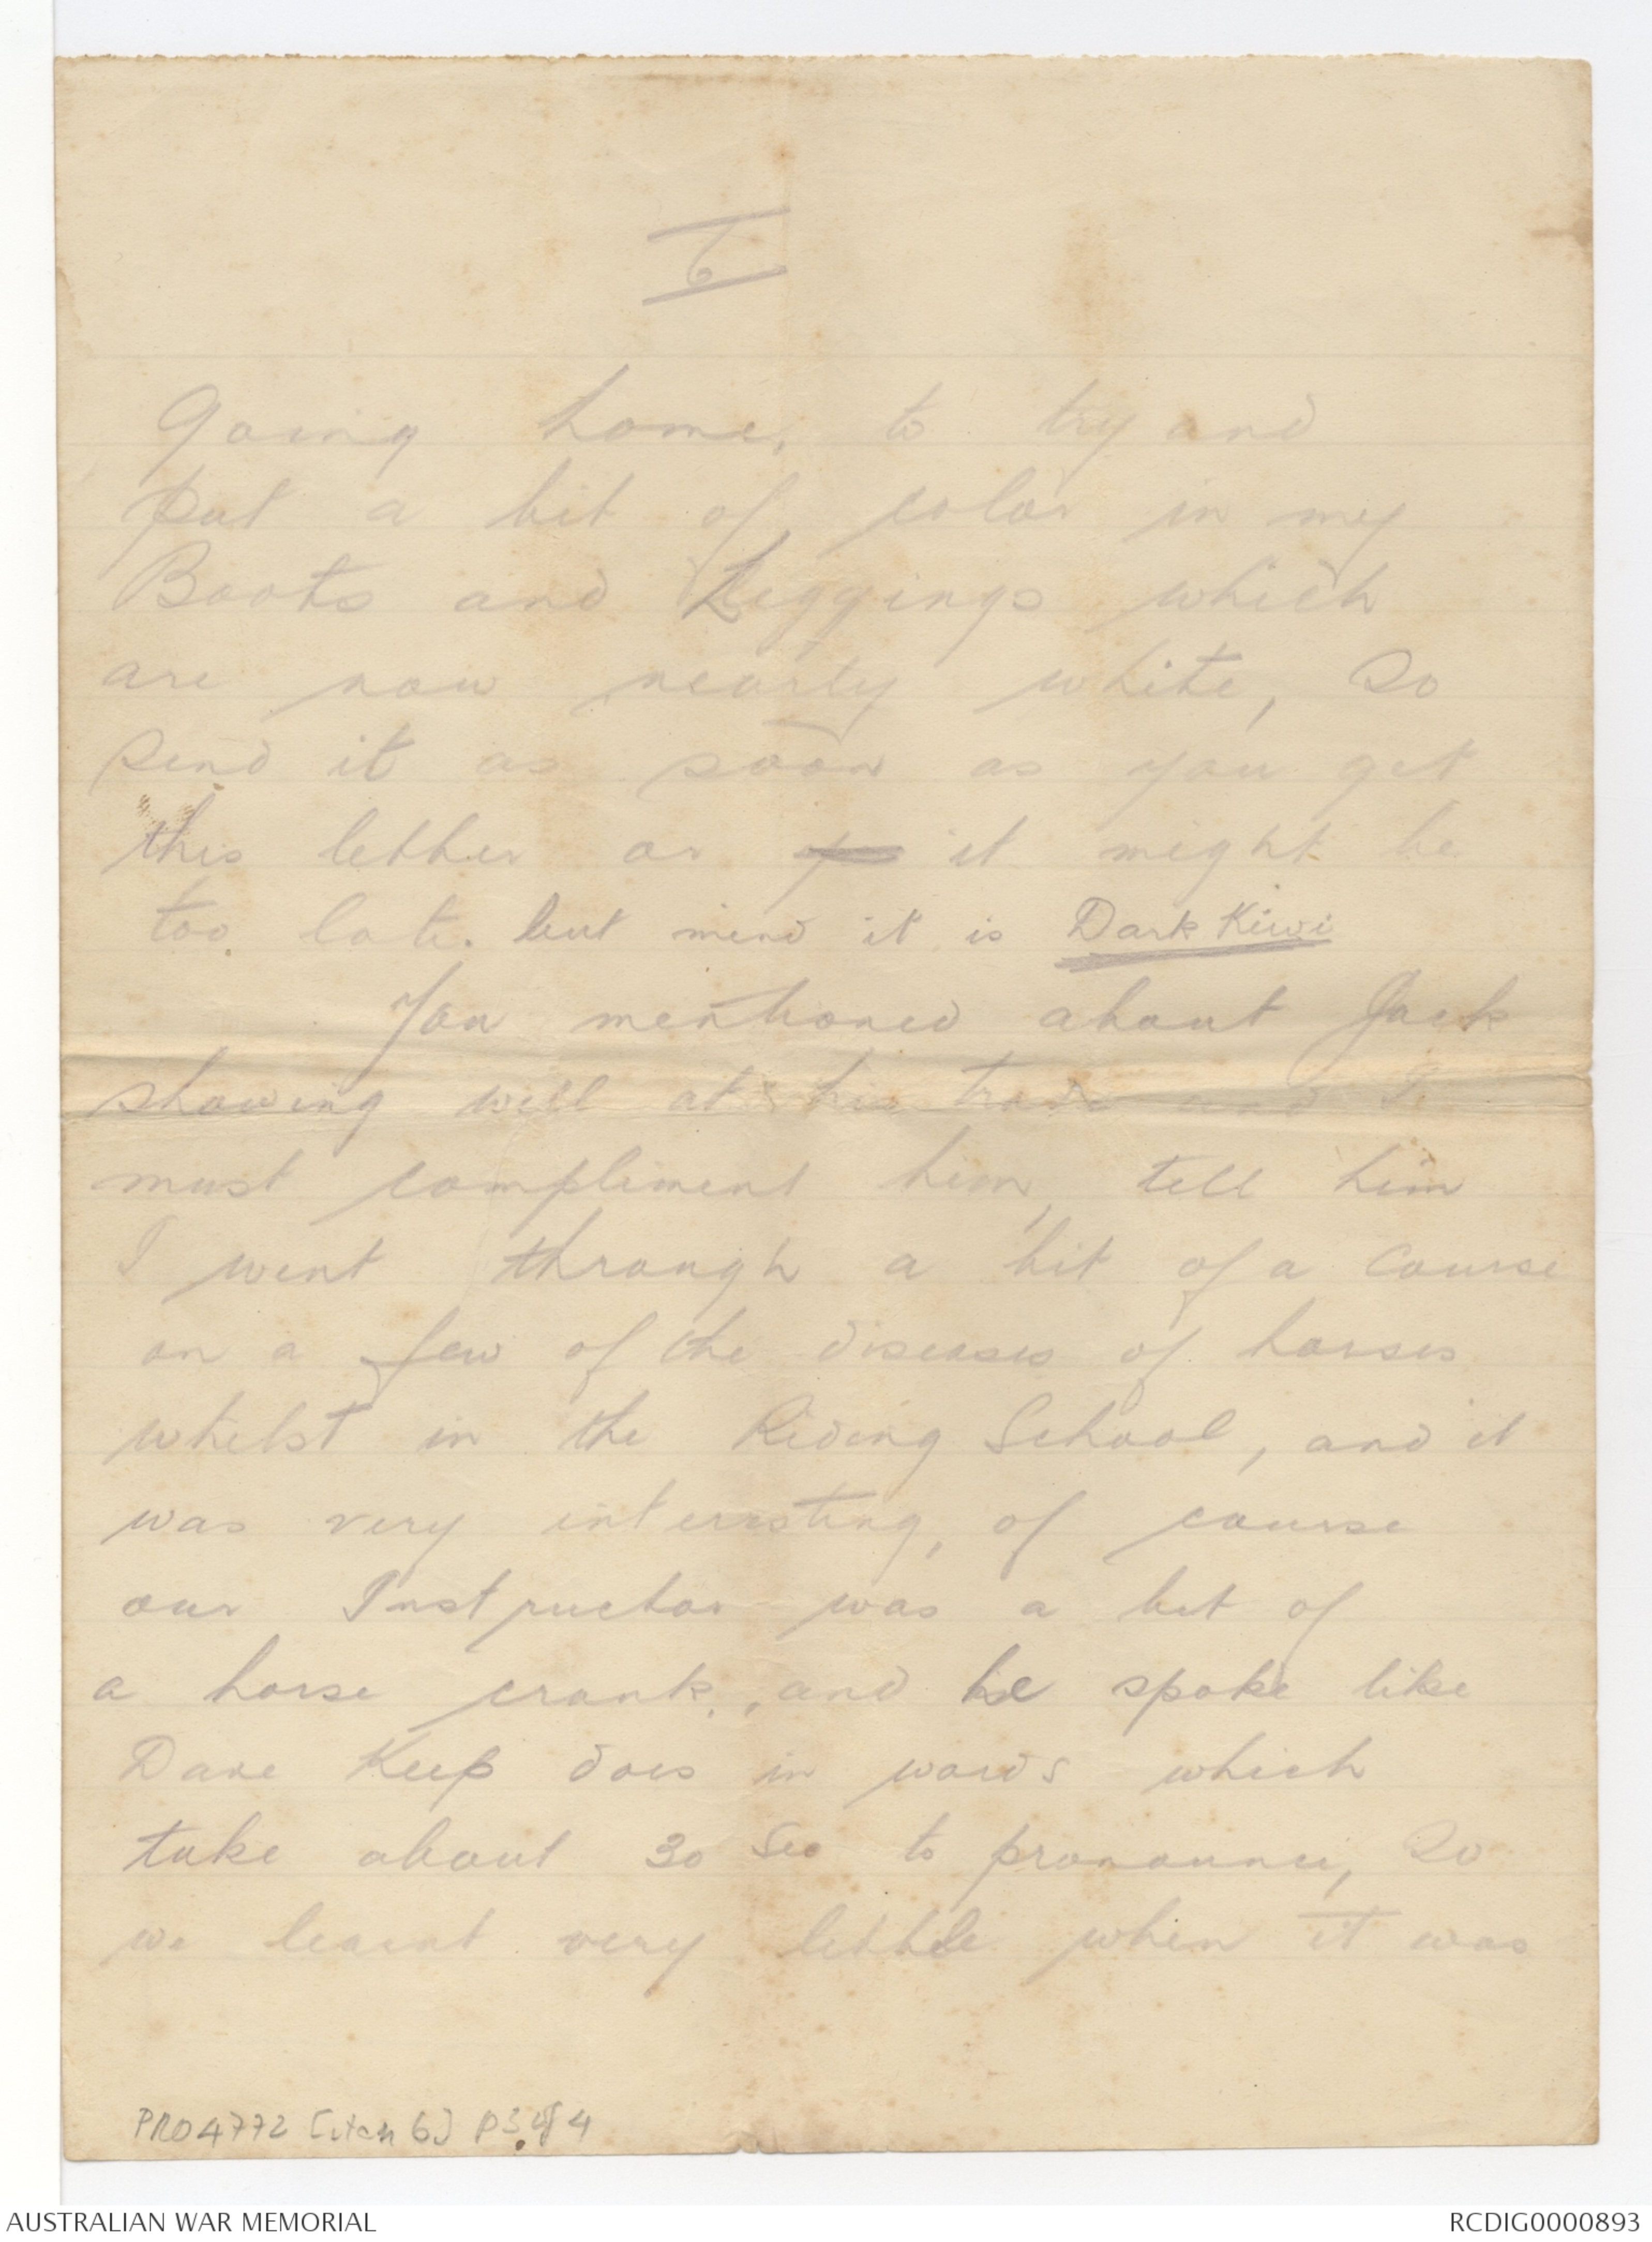 6
Going home, to try and
put a bit of color in my
Boots and Leggings which
are now nearly white, So
send it as soon as you get
this letter or it might be
too late. but mind it is Dark Kiwi
You mentioned about Jack
showing well at his trade and I
must compliment him, tell him
I went through a bit of a course
on a few of the diseases of horses
whilst in the Riding School, and it
was very interesting, of course
our Instructor was a bit of
a horse crank, and he spoke like
Dave Keep does in words which
take about 30 Sec to pronounce, So
we learnt very little when it was
PR04772 [item 6] p3 of 4
AUSTRALIAN WAR MEMORIAL
RCDIG0000893